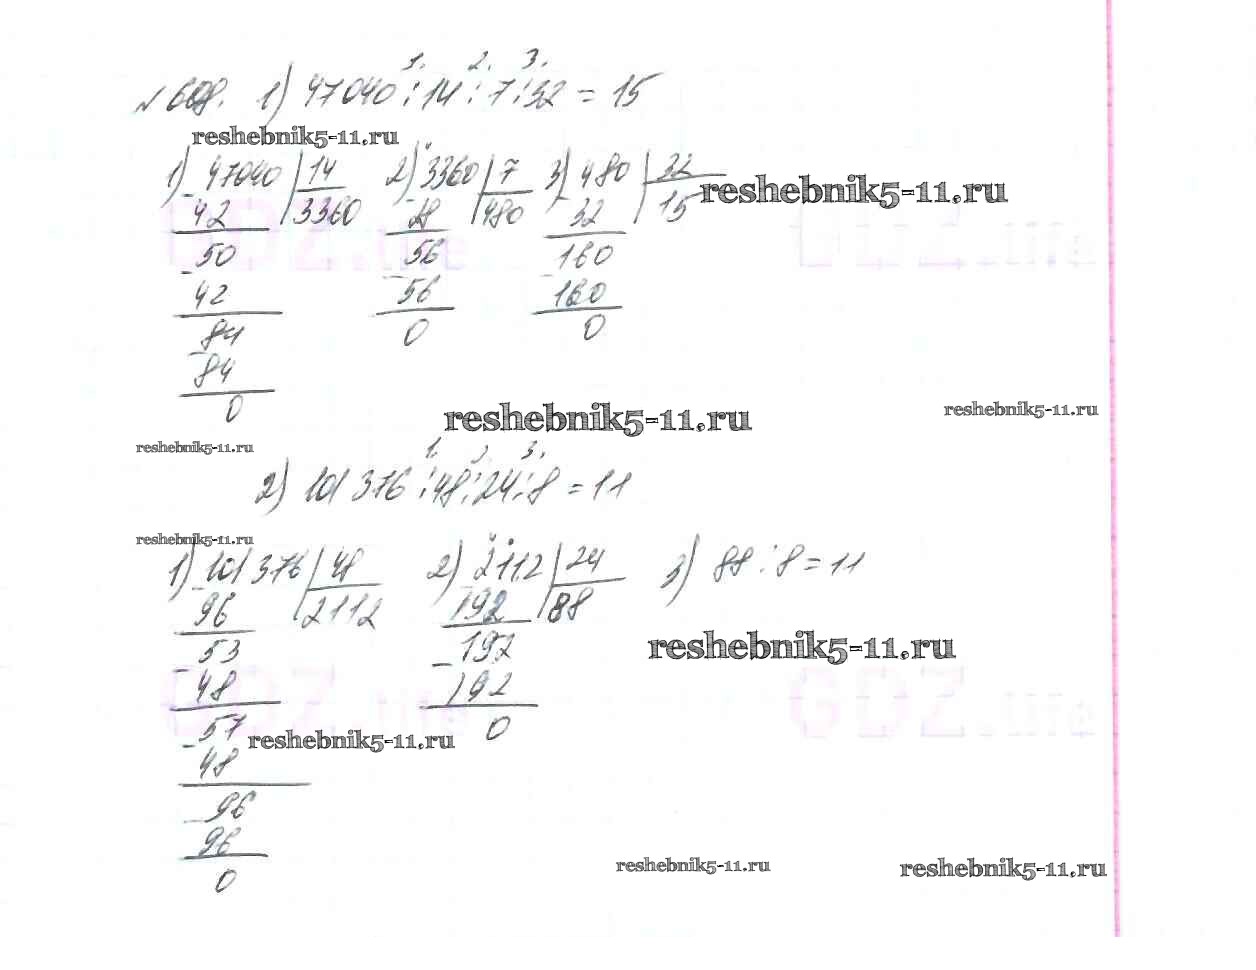 №608. 1) 47040 : 14 : 7 : 32 = 15
1. 2. 3.
reshebnik5-11.ru
1) 47040 | 14 2) 3360 | 7 3) 480 | 32
42 3360 28 480 32 15
reshebnik5-11.ru
50 56 160
42 56 160
84 0 0
84
0
GDZ.life GDZ.life
reshebnik5-11.ru
reshebnik5-11.ru
reshebnik5-11.ru
1. 2. 3.
2) 101 376 : 48 : 24 : 8 = 11
reshebnik5-11.ru
1) 101 376 | 48 2) 2112 | 24 3) 88 : 8 = 11
96 2112 192 88
53 192
48 192
57 0
48
96
96
0
reshebnik5-11.ru
GDZ.life GDZ.life
reshebnik5-11.ru
reshebnik5-11.ru
reshebnik5-11.ru